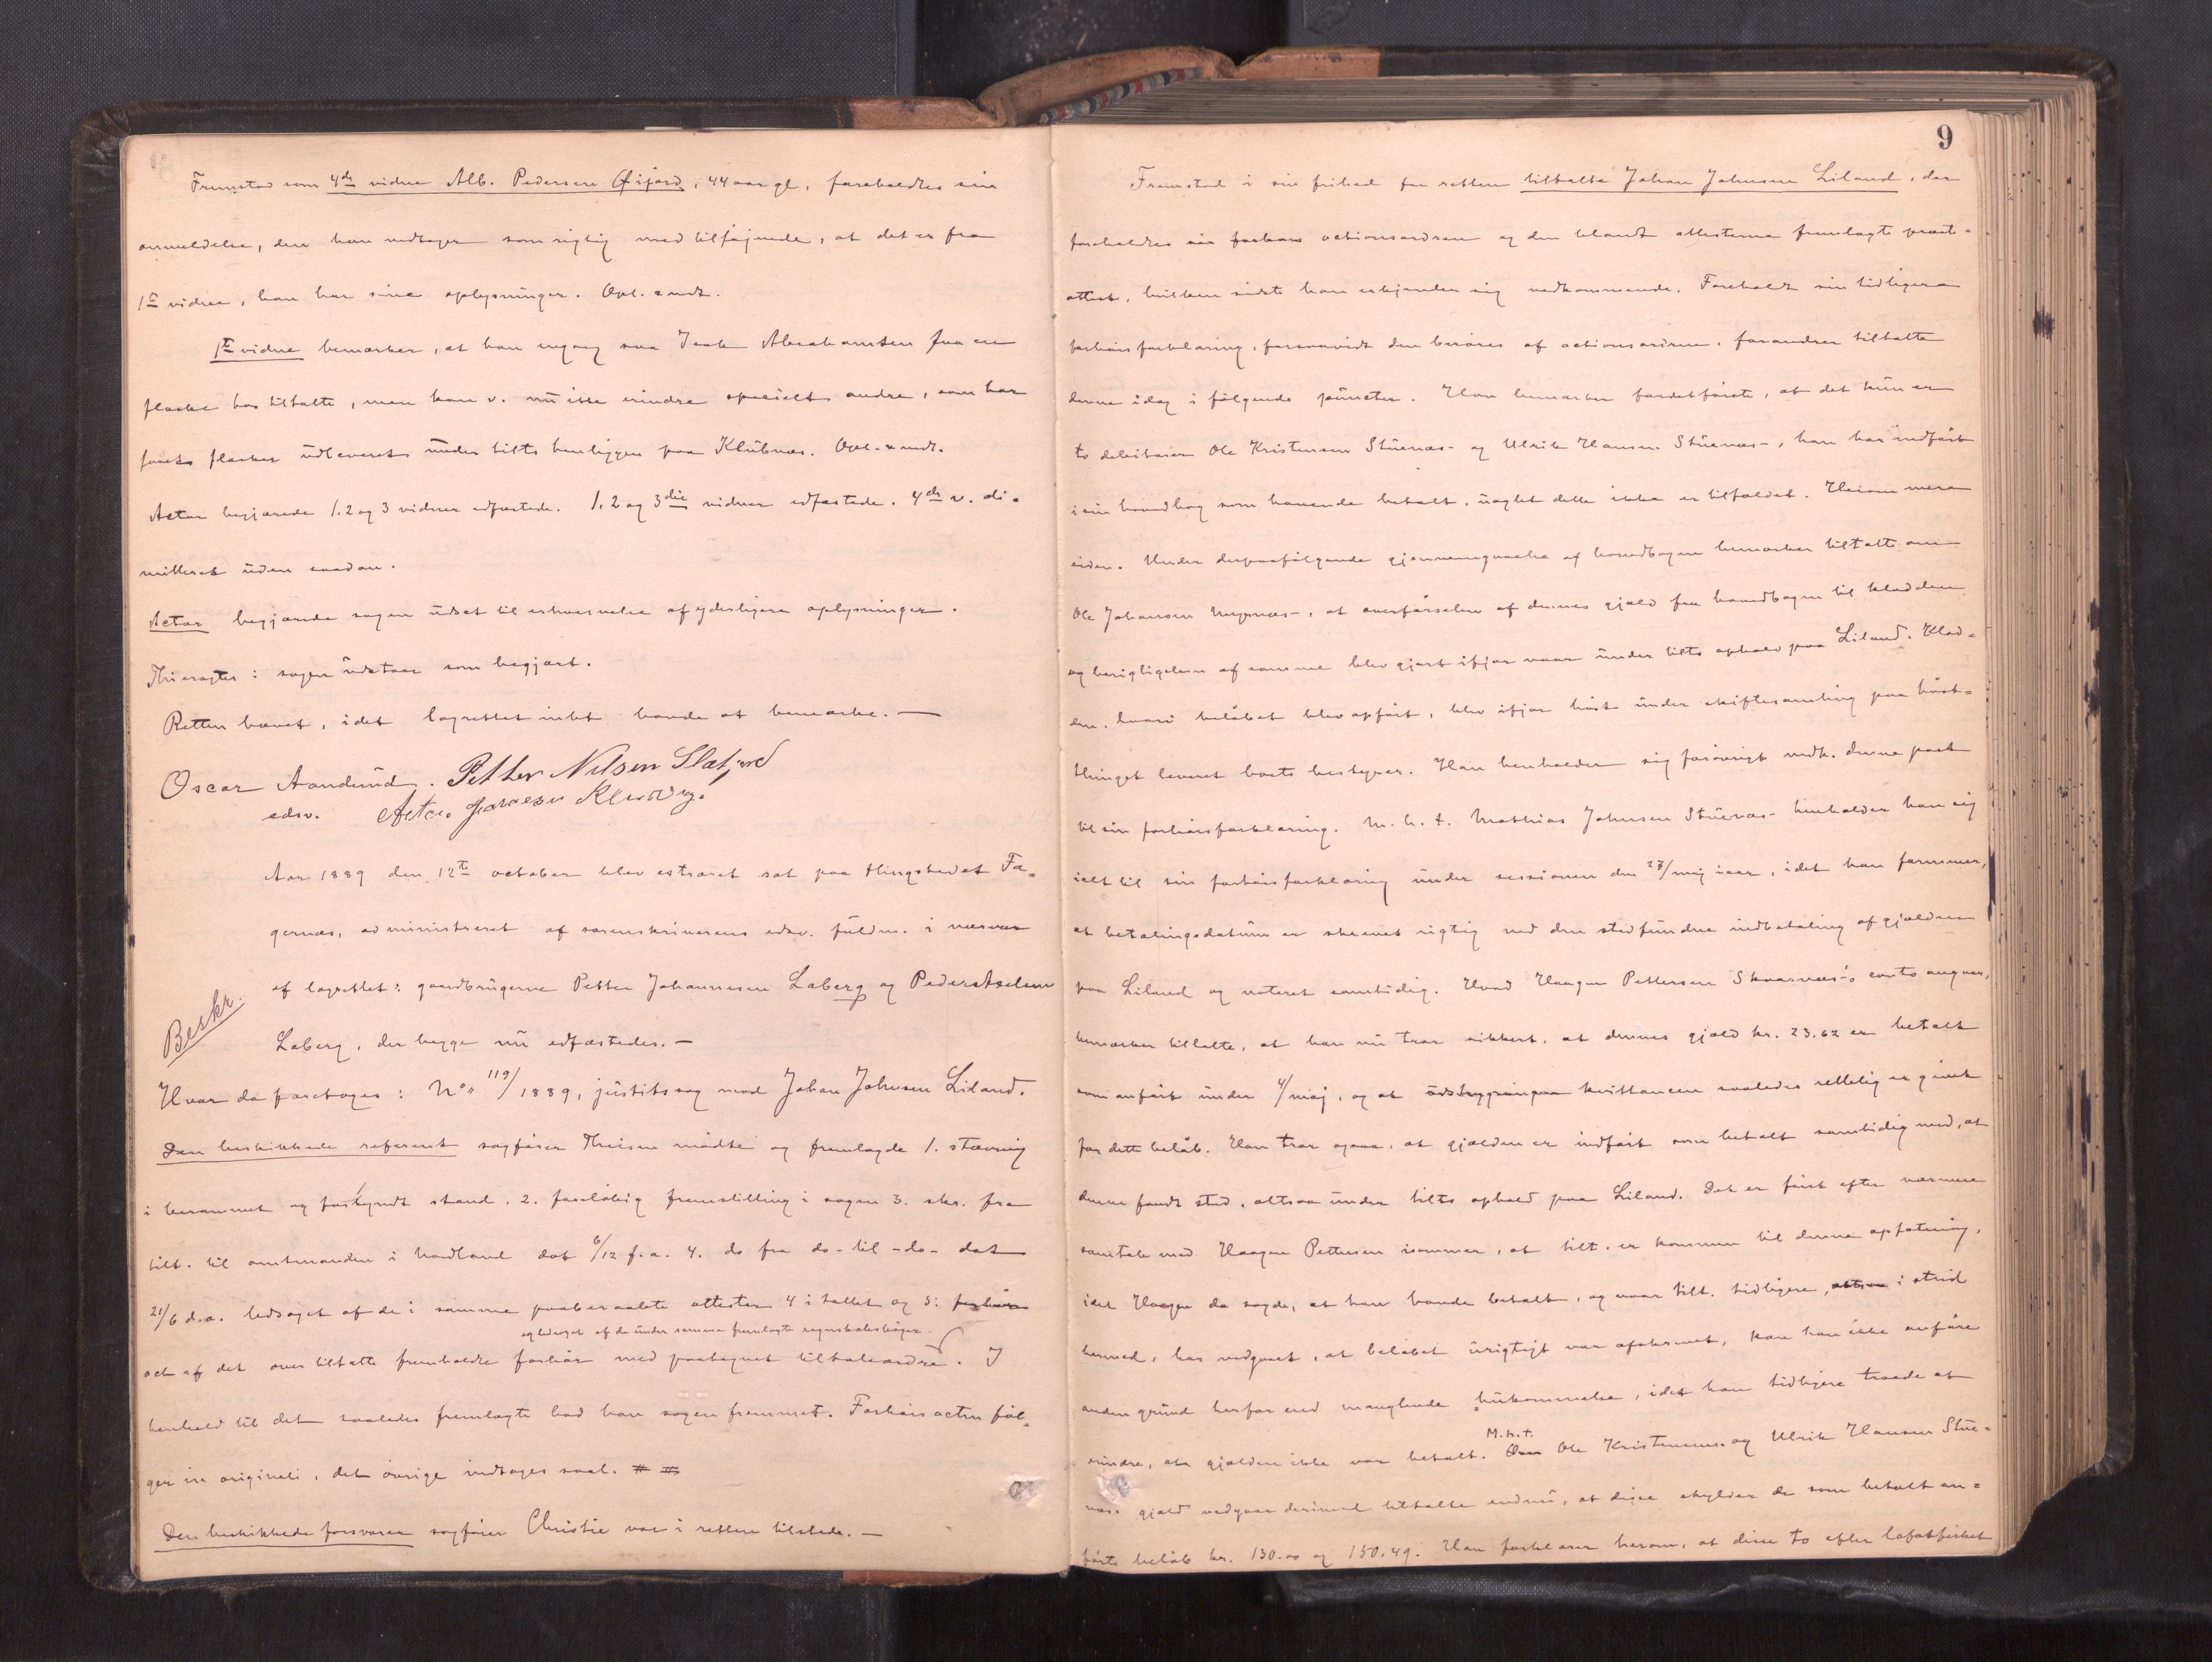 Fremstod som 4de vidne Alb. Pedersen Øifjord, 44 aar gl, foreholdtes sin
anmeldelse, den han vedtager som rigtig med tilføjende, at det er fra
1te vidne, han har sine oplysninger. Opl. & vedt.
1te vidne bemærker, at han engang saa Isak Abrahamsen faa en
flaske hos tiltalte, men kan v. nu ikke erindre specielt andre, som har
faaet flasker udleveret under tilts henliggen paa Klubnæs. Opl. & vedt.
Actor begjærede 1, 2 og 3 vidner edfæstede. 1, 2 og 3die vidner edfæstede. 4de v. di-
mitteret uden saadan.
Actor begjærede sagen udsat til erhvervelse af yderligere oplysninger.
Thi eragtes: sagen udstaar som begjært.
Retten hævet, idet lagrettet intet havde at bemærke. —
Oscar Aanderud. Petter Nilsen Slatjord
edsv.
Aar 1889 den 12te october blev extraret sat paa thingstedet Fa-
gernæs, administreret af sorenskriverens edsv. fuldm. i nærvær
af lagrettet: gaardbrugerne Petter Johannesen Laberg og Peder Axelsen
Beskr.
Laberg, der begge nu edfæstedes. —
Hvor da foretoges: No 119/1889, justitssag mod Johan Johnsen Liland.
Den beskikkede referent sagfører Theisen mødte og fremlagde 1. stævning
i berammet og forkyndt stand. 2. foreløbig fremstilling i sagen 3. skr. fra
tilt. til amtmanden i Nordland dat 6/12 f.a. 4. do fra do - til - do - dat
21/6 d.a. ledsaget af de i samme paaberaabte attester 4 i tallet og 5: forhør
og ledsaget af de under samme fremlagte regnskabsbøger.
act af det over tiltalte fremholdte forhør med paategnet tiltaleordre. I
henhold til det saaledes fremlagte bad han sagen fremmet. Forhørsacten føl-
ger in originali, det øvrige indtages saal. # #
Den beskikkede forsvarer sagfører Christie var i retten tilstede. —
9
Fremstod i sin frihed for retten tiltalte Johan Johnsen Liland, der
foreholdtes sin forhørs actionsordren og den blandt attesterne fremlagte præste-
attest, hvilken sidste han erkjender sig vedkommende. Foreholdt sin tidligere
forhørsforklaring, forsaavidt den berøres af actionsordren, forandrer tiltalte
denne idag i følgende puncter. Han bemærker fordetførste, at det kun er
to debitorer Ole Kristensen Stuenæs - og Ulrik Hansen Stuenæs -, han har indført
i sin hovedbog som havende betalt, uagtet dette ikke er tilfældet. Herom mere
siden. Under derpaafølgende gjennemgaaelse af hovedbogen bemærker tiltalte om
Ole Johansen Mynæs -, at overførselen af dennes gjæld fra hovedbogen til kladden
og berigtigelsen af samme blev gjort ifjor vaar under tilts ophold paa Liland. Klad-
den, hvori beløbet blev opført, blev ifjor høst under skiftesamling paa høst-
thinget leveret boets bestyrer. Han henholder sig forøvrigt vedk. denne post
til sin forhørsforklaring. M. h. t. Mathias Johnsen Stuenæs - henholder han sig
ialt til sin forhørsforklaring under sessionen den 27/maj iaar, idet han formener,
at betalingsdatum er skrevet rigtig ved den stedfundne indbetaling af gjælden
paa Liland og noteret samtidig. Hvad Haagen Pettersen Skarnæs's conto angaar,
bemærker tiltalte, at han nu tror sikkert, at dennes gjæld kr. 23.62 er betalt
som anført under 4/maj, og at kvittancen saaledes rettelig er givet
for dette beløb. Han tror ogsaa, at gjælden er indført som betalt samtidig med, at
denne fandt sted, altsaa under tilts ophold paa Liland. Det er først efter nærmere
samtale med Haagen Pettersen isommer, at tilt. er kommen til denne opfatning,
idet Haagen da sagde, at han havde betalt, og naar tilt. tidligere, altsaa i strid
hermed, har vedgaaet, at beløbet urigtigt var afskrevet, kan han ikke anføre
anden grund herfor end manglende hukommelse, idet han tidligere troede at
erindre, at gjælden ikke var betalt. M. h. t. Ole Kristensens og Ulrik Hansen Stue-
næs's gjæld vedgaar derimod tiltalte endnu, at disse skylder de som betalt an-
førte beløb kr. 130.00 og 150.49. Han forklarer herom, at disse to efter lofotfisket